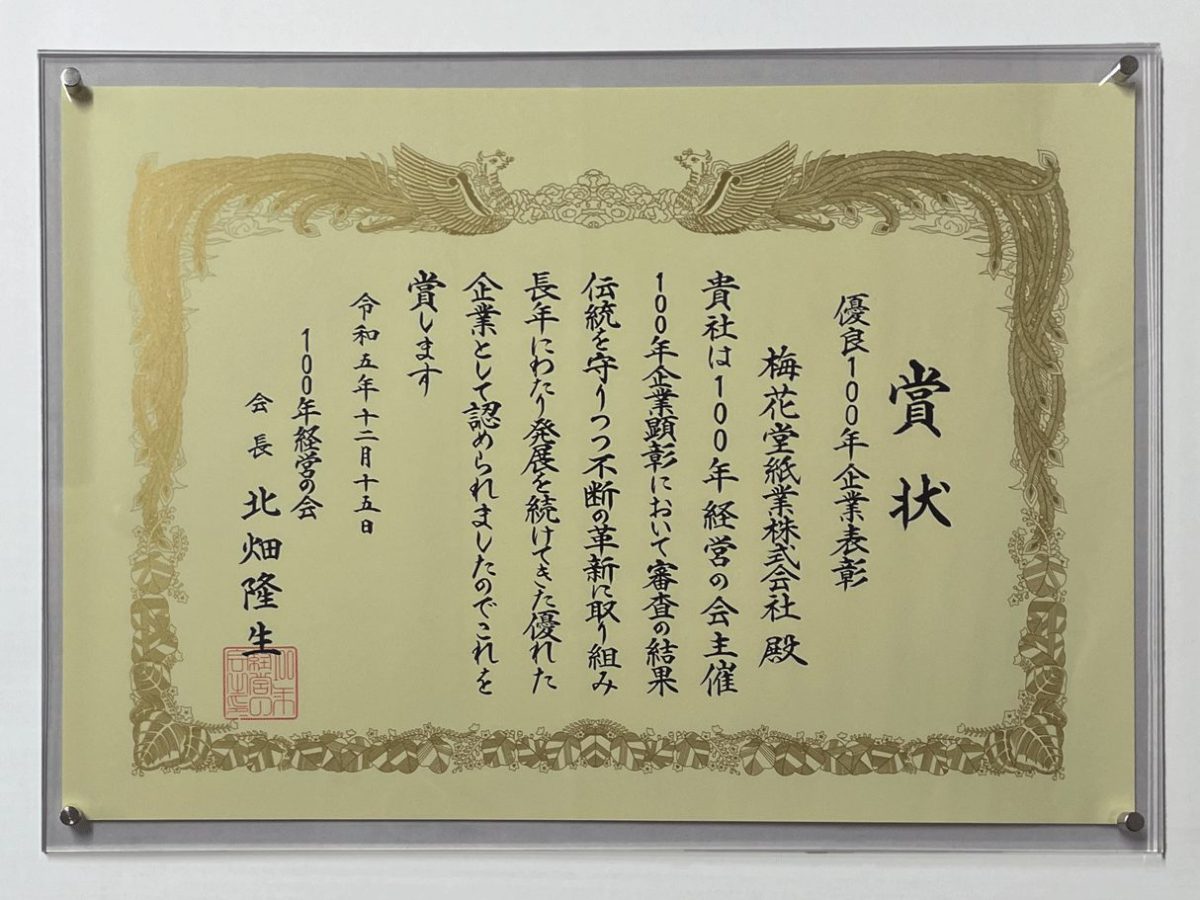 賞状
優良100年企業表彰
梅花堂紙業株式会社 殿
貴社は100年経営の会主催
100年企業顕彰において審査の結果
伝統を守りつつ不断の革新に取り組み
長年にわたり発展を続けてきた優れた
企業として認められましたのでこれを
賞します
令和五年十二月十五日
100年経営の会
会長 北畑隆生